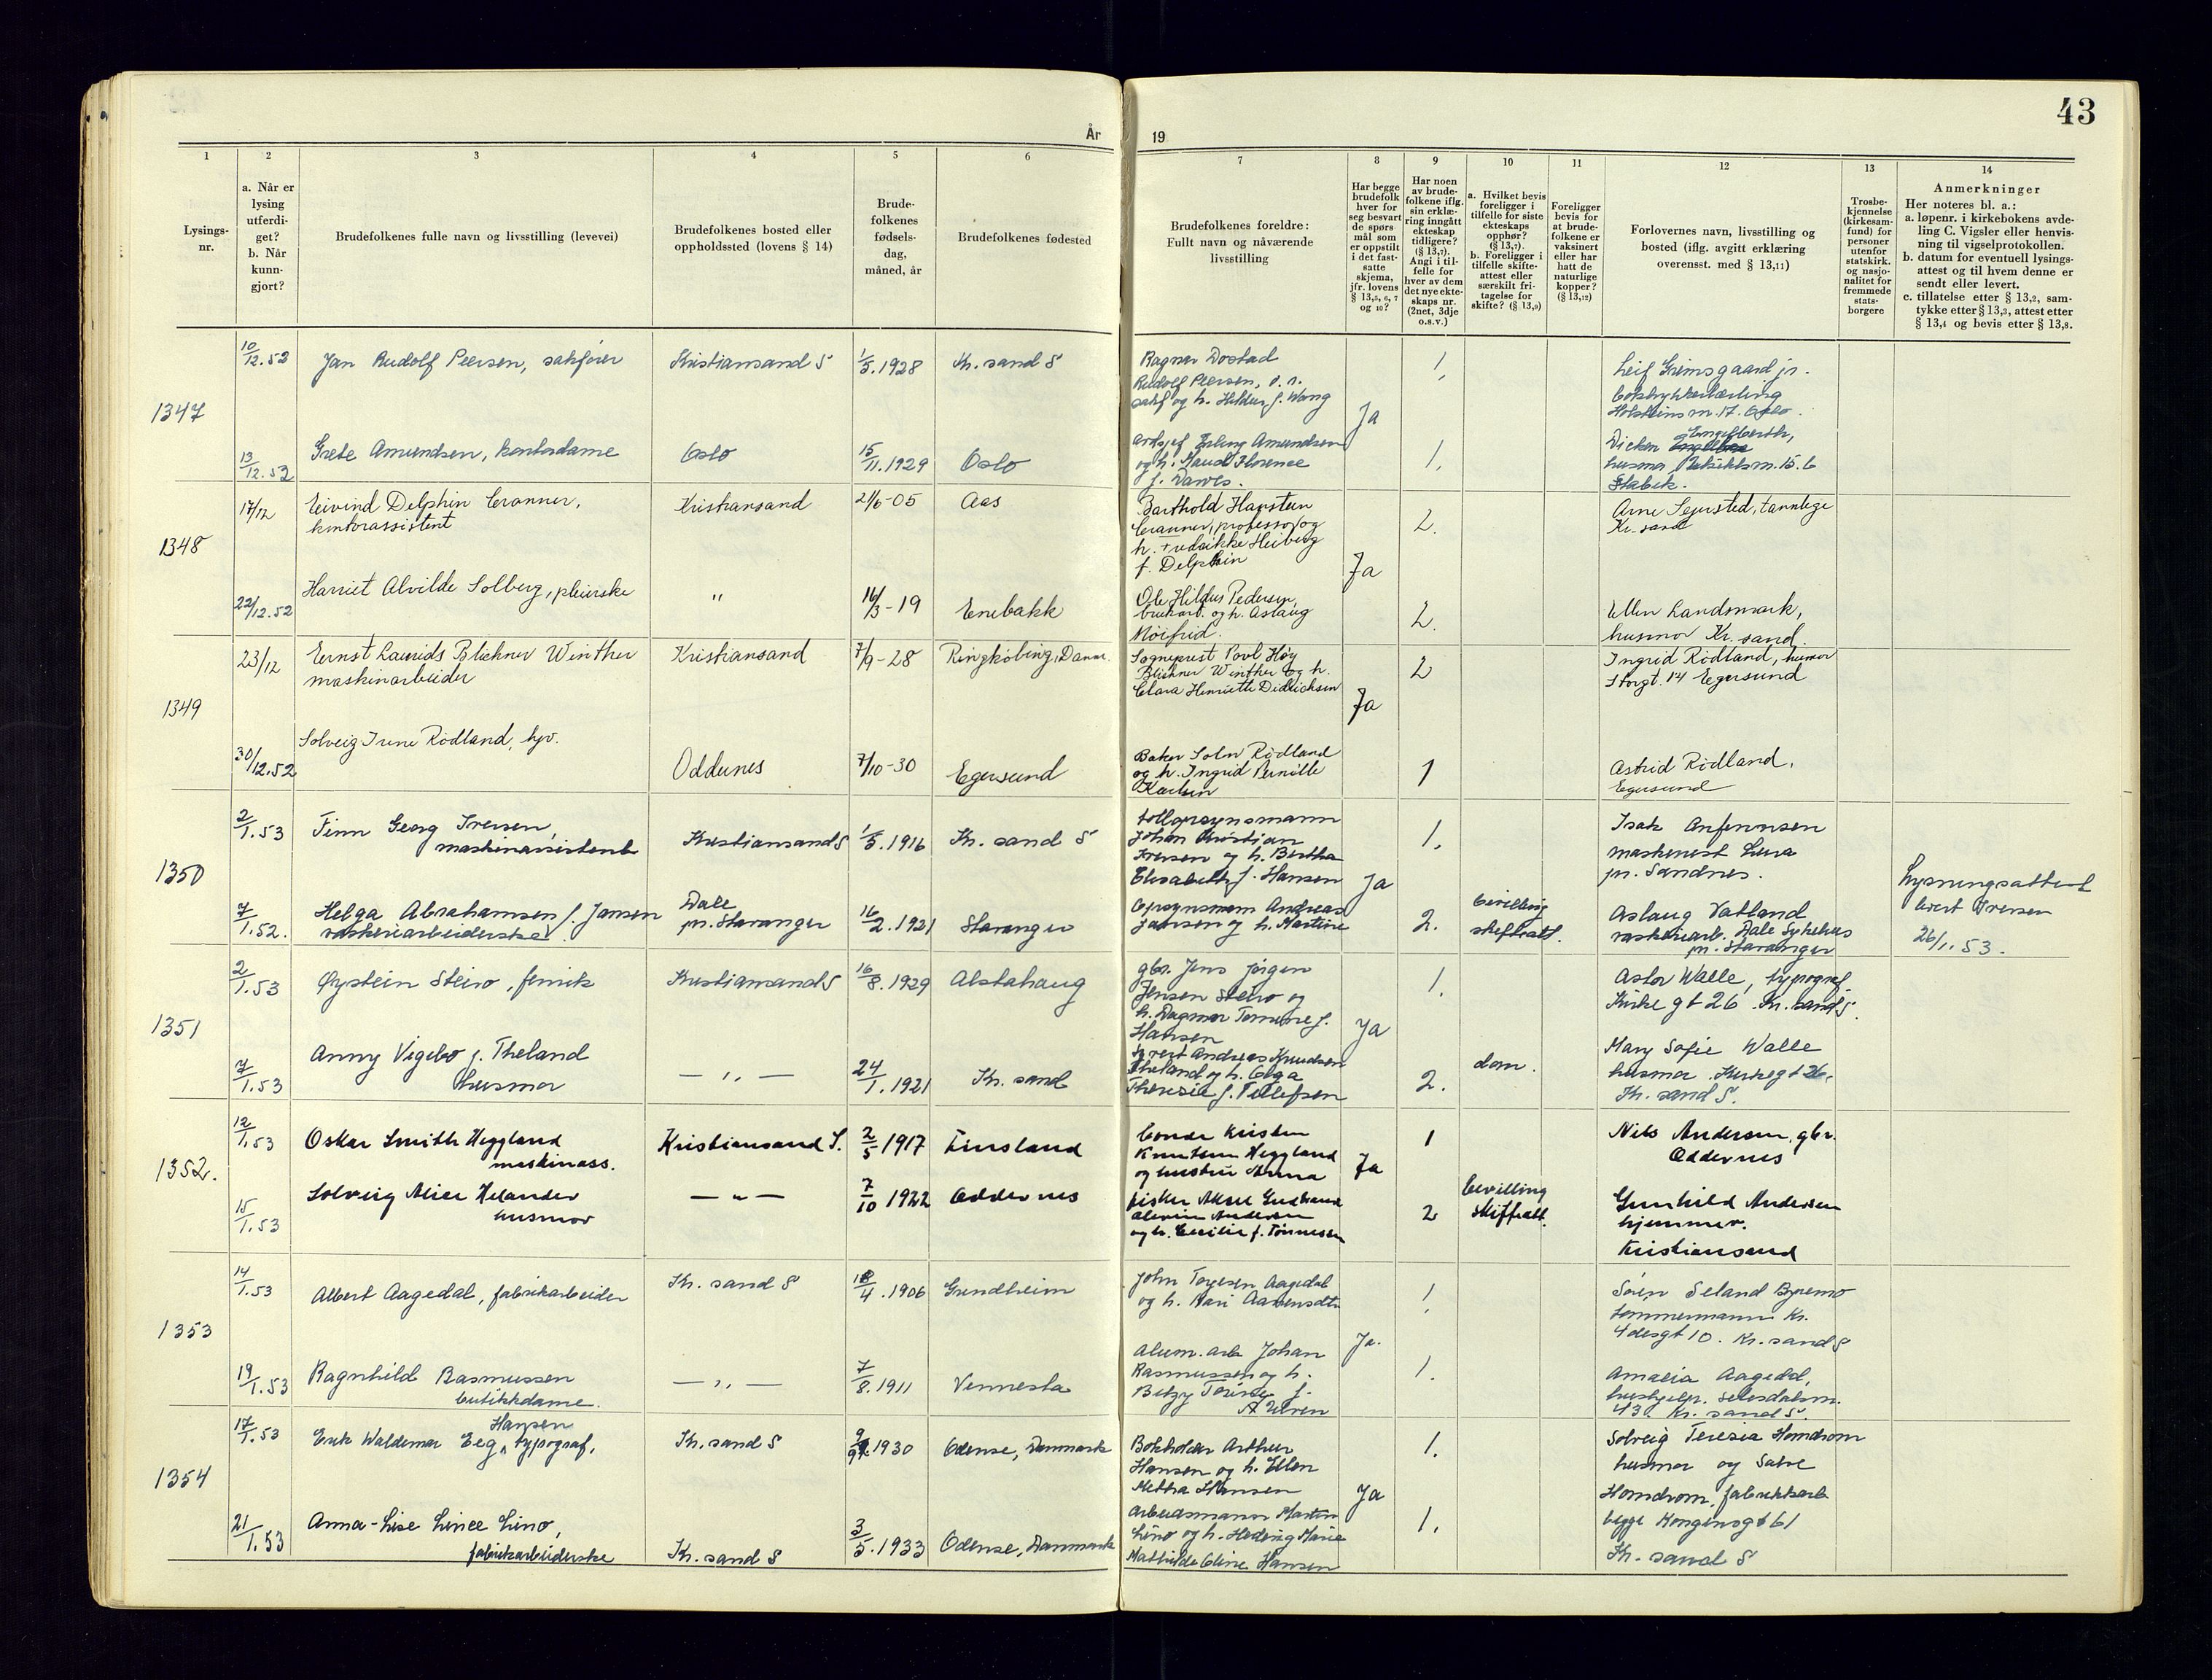 43
År 19
1
2
3
4
5
6
7
8
9
10
11
12
13
14
Lysings-
nr.
a. Når er
lysing
utferdi-
get?
b. Når
kunn-
gjort?
Brudefolkenes fulle navn og livsstilling (levevei)
Brudefolkenes bosted eller
oppholdssted (lovens § 14)
Brude-
folkenes
fødsels-
dag,
måned, år
Brudefolkenes fødested
Brudefolkenes foreldre:
Fullt navn og nåværende
livsstilling
Har begge
brudefolk
hver for
seg besvart
de spørs-
mål som
er oppstilt
i det fast-
satte
skjema,
jfr. lovens
§ 13,5, 6, 7
og 10?
Har noen
av brude-
folkene iflg.
sin erklæ-
ring inngått
ekteskap
tidligere?
(§ 13,7).
Angi i til-
felle for
hver av dem
det nye ekte-
skaps nr.
(2net, 3dje
o.s.v.)
a. Hvilket bevis
foreligger i
tilfelle for siste
ekteskaps
opphør?
(§ 13,7).
b. Foreligger i
tilfelle skifte-
attest eller
særskilt fri-
tagelse for
skifte? (§ 13,9)
Foreligger
bevis for
at brude-
folkene er
vaksinert
eller har
hatt de
naturlige
kopper?
(§ 13,12)
Forlovernes navn, livsstilling og
bosted (iflg. avgitt erklæring
overensst. med § 13,11)
Trosbe-
kjennelse
(kirkesam-
fund) for
personer
utenfor
statskirk.
og nasjo-
nalitet for
fremmede
stats-
borgere
Anmerkninger
Her noteres bl. a.:
a. løpenr. i kirkebokens avde-
ling C. Vigsler eller henvis-
ning til vigselprotokollen.
b. datum for eventuell lysings-
attest og til hvem denne er
sendt eller levert.
c. tillatelse etter § 13,2, sam-
tykke etter § 13,3, attest etter
§ 13,4 og bevis etter § 13,8.
1347
10/12.52
Jan Rudolf Peersen, sakfører
Kristiansand S
1/5.1928
Kr. sand S
Ragnar Dostad
Rudolf Peersen, o.r.
sakf og h. Hildur f. Wang
Ja
1.
Leif Grimsgaard jr.
boktrykkerlærling
Holsteins m. 17. Oslo.
13/12.52
Grete Amundsen, kontordame
Oslo
15/11.1929
Oslo
Erling Amundsen
og h. Maud Florence
f. Dawes.
1.
Engelberth,
husmor,
Stabek.
1348
17/12
Eivind Delphin Cranner,
kontorassistent
Kristiansand
21/6-05
Aas
Barthold Hansteen
Cranner, professor og
h. Fredrikke Heiberg
f. Delphin
Ja
2.
Arne Sejersted, tannlege
Kr. sand
22/12.52
Harriet Alvilde Solberg, pleierske
"
16/3-19
Enebakk
Ole Hildus Pedersen,
brukarb. og h. Aslaug
Møifrid.
2.
Ellen Landsmark,
husmor Kr. sand.
1349
23/12
Ernst Laurids Blichner Winther
maskinarbeider
Kristiansand
7/9-28
Ringkøbing, Danm.
Sogneprest Povl Høy
Blichner Winther og h.
Clara Henriette Didrichsen
Ja
2
Ingrid Rødland, husmor
Storgt. 14 Egersund
30/12.52
Solveig Irene Rødland, hjv.
Oddernes
7/10-30
Egersund
Baker Rødland
og h. Ingrid Pernille
Karlsen
1
Astrid Rødland,
Egersund
1350
2/1.53
Finn Georg Iversen,
maskinassistent
Kristiansand S
1/5.1916
Kr. sand S
tollopsynsmann
Johan Kristian
Iversen og h. Bertha
Elisabeth f. Hansen
Ja
1.
Isak Anfinnsen
maskinist Lura
pr. Sandnes.
7/1.52.
Helga Abrahamsen f. Jansen
vaskeriarbeiderske
Dale
pr. Stavanger
16/2.1921
Stavanger
Opsynsmann Andreas
Jansen og h. Martine
2.
bevilling
skifteatt.
Aslaug Vatland
vaskeriarb. Dale Sykehus
pr. Stavanger
Lysningsattest
levert Iversen
26/1. 53.
1351
2/1.53
Øystein Steiro, fenrik
Kristiansand S
16/8.1929
Alstahaug
gbr. Jens Jørgen
Jensen Steiro og
h. Dagmar Tomine f.
Hansen
Ja
1.
Astor Walle, typograf
Kirkegt 26 Kr. sand S.
7/1.53
Anny Vigebo f. Theland
husmor
— " —
24/1.1921
Kr. sand
Syvert Andreas Knudsen
Theland og h. Olga
Theresie f. Tellefsen
2.
dom.
Mary Sofie Walle
husmor. Kirkegt 26,
Kr. sand S.
1352.
12/1.53
Oskar Smith Heggland
maskinass.
Kristiansand S.
2/5 1917
Finsland
bonde Kristen
Knutsen Heggland
og hustru Anna
Ja
1
Nils Andersen, gbr.
Oddernes
15/1.53
Solveig Alice Helander
husmor
— " —
7/10 1922
Oddernes
fisker Aksel Gudbrand
Andersen
og h. Cecilie f. Tønnessen
2
bevilling
skifteatt.
Gunhild Andersen
hjemmev.
Kristiansand
1353
14/1.53
Albert Aagedal, fabrikarbeider
Kr. sand S
18/4.1906
Grindheim
John Torjesen Aagedal
og h. Mari Aanensdtr
Ja.
1.
Søren Seland Byremo
tømmermann Kr.
4desgt 10. Kr. sand S
19/1.53
Ragnhild Rasmussen
butikkdame.
— " —
7/8.1911
Vennesla
alum. arb Johan
Rasmussen og h.
Betzy Torine f.
Uleren
1.
Amalia Aagedal,
hushjelp. Setesdalsm.
43. Kr. sand S.
1354
17/1.53
Erik Waldemar Eeg Hansen, typograf,
Kr. sand S
9/9.1930
Odense, Danmark
Bokholder Arthur
Hansen og h. Ellen
Metha Hansen
Ja
1.
Solveig Teresia Homdrom
husmor og Salve
Homdrom, fabrikkarb
begge Kongensgt 61
Kr. sand S
21/1.53
Anna-Lise Linee Lino,
fabrikarbeiderske
Kr. sand S
3/5.1933
Odense, Danmark
Arbeidsmann Martin
Lino og h. Hedvig Marie
Mathilde Oline Hansen
1.